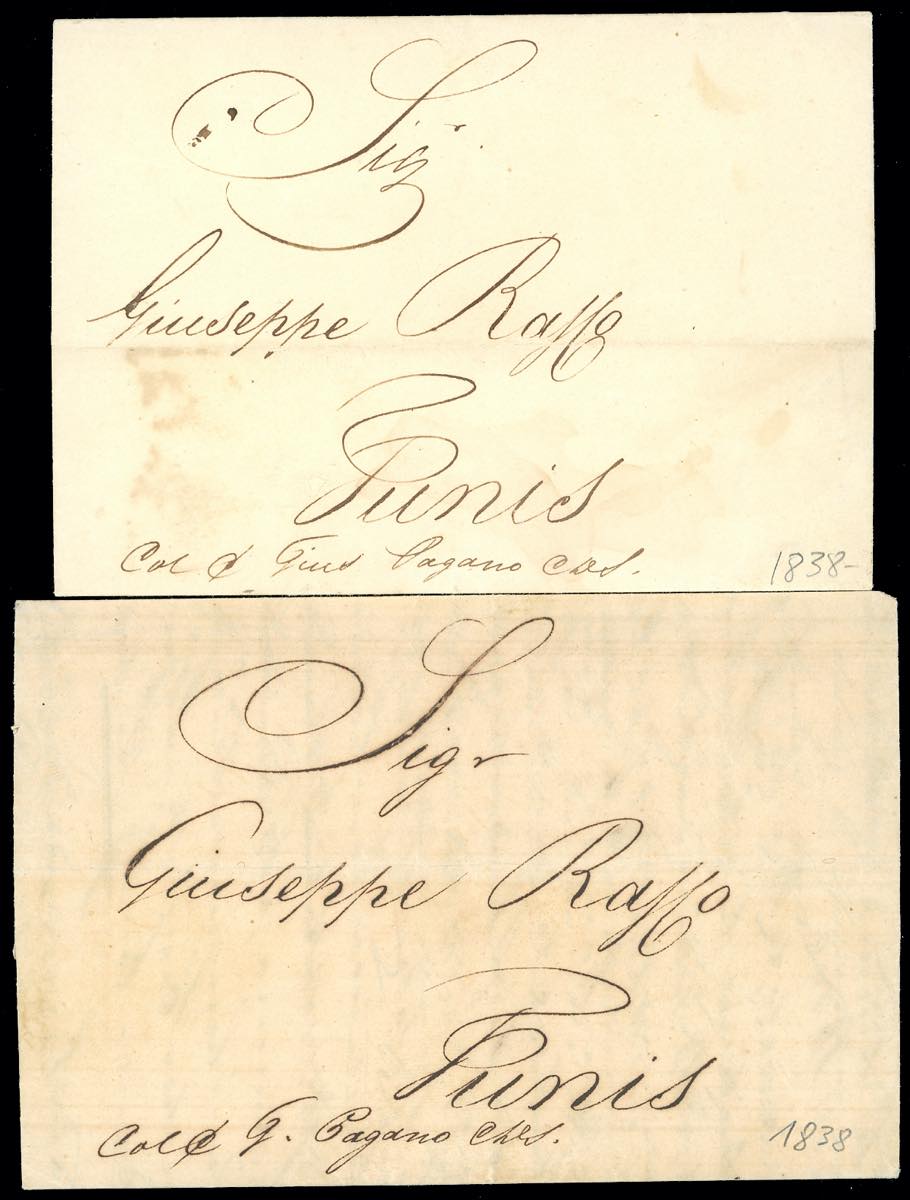 Sigr
Giuseppe Raffo
Tunis
Col C Gius Pagano
1838-
Sigr
Giuseppe Raffo
Tunis
Col C G. Pagano
1838